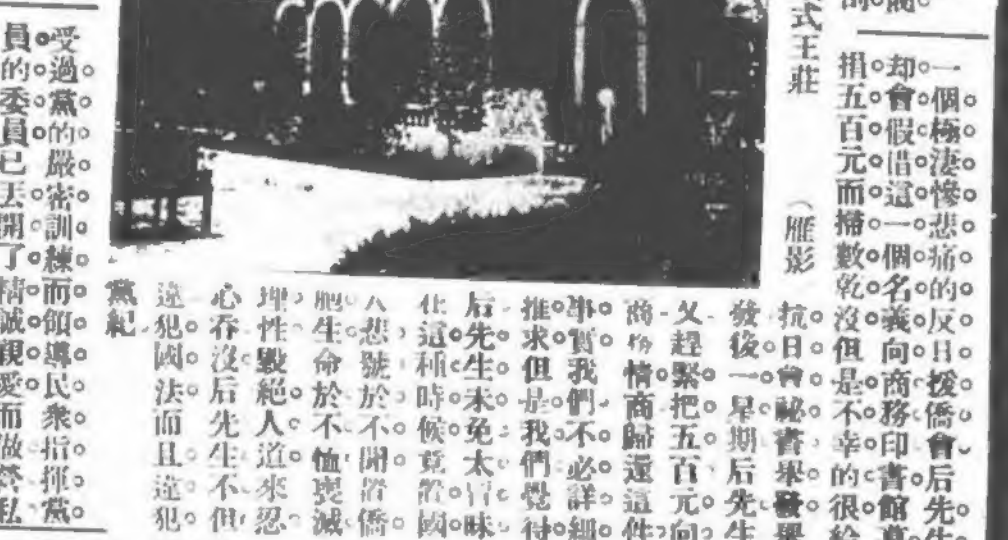 一個極淒慘悲痛的反日援僑會后先生
却會假借這一個名義向商務印書館募
捐五百元而掃數乾沒但是不幸的很給
式王莊
(雁影)
抗日會祕書舉發舉
發後一星期后先生
又趕緊把五百元向
商務情商歸還這件
事實我們不必詳細
推求但是我們覺得
后先生未免太冒昧
在這種時候竟置國
人悲號於不聞置僑
胞生命於不恤喪滅
理性毀絕人道來忍
心吞沒后先生不但
違犯國法而且違犯
黨紀
受過黨的嚴密訓練而領導民衆指揮黨
員的委員已丟開了精誠親愛而做營私